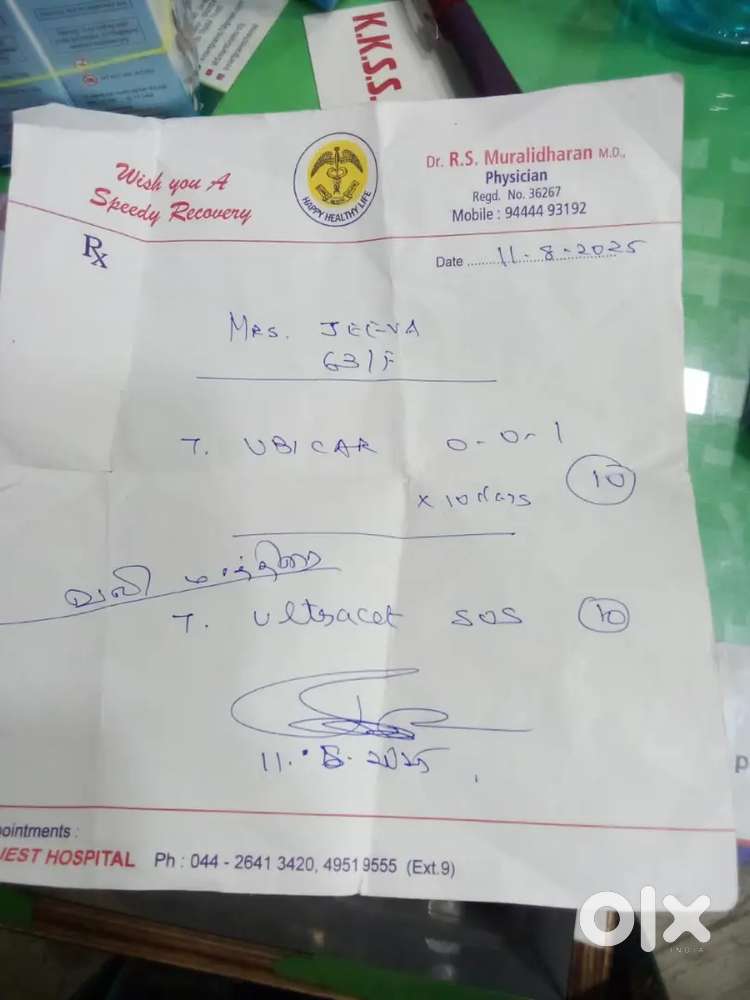 K.K.S.S.
Wish you A
Speedy Recovery
HAPPY HEALTHY LIFE
Dr. R.S. Muralidharan M.D.,
Physician
Regd. No. 36267
Mobile : 94444 93192
Rx
Date ........ 11-8-2025
MRS. JEEVA
63/F
T. UBICAR 0-0-1
x 10 days 10
வலி மாத்திரை
T. Ultracet SOS 10
11.8.2025
ointments :
EST HOSPITAL Ph : 044 - 2641 3420, 4951 9555 (Ext.9)
olx
INDIA